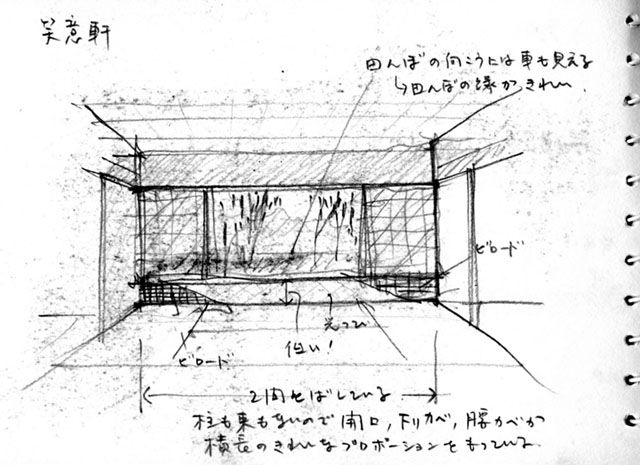 笑意軒
田んぼの向こうには車も見える
↳田んぼの緑がきれい.
ビロード
光ってる
低い!
ビロード
2間とばしている
柱も束もないので開口,下リカベ,腰カベが
横長のきれいなプロポーションをもっている.